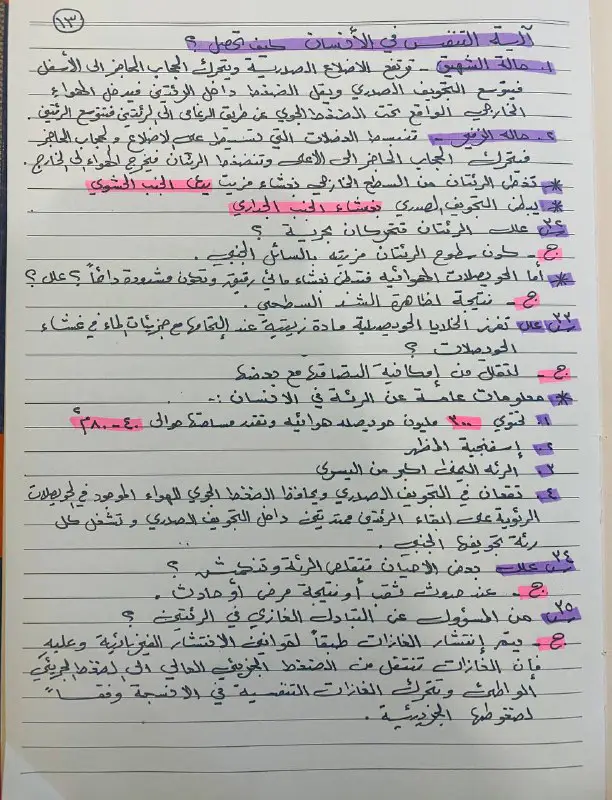 ١٣
آلية التنفس في الأنسان كيف تحصل ؟
١. حالة الشهيق - ترتفع الاضلاع الصدرية ويتحرك الحجاب الحاجز الى الأسفل
فيتوسع التجويف الصدري ويقل الضغط داخل الرئتين فيدخل الهواء
الخارجي الواقع تحت الضغط الجوي عن طريق الرغامى الى الرئتين فيتوسع الرئتين
٢. حالة الزفير - تنبسط العضلات التي تسيطر على الاضلاع والحجاب الحاجز
فيتحرك الحجاب الحاجز الى الأعلى وتنضغط الرئتان فيخرج الهواء الى الخارج.
* تغطى الرئتان من السطح الخارجي بغشاء مزيت يدعى الجنب الحشوي
* يبطن التجويف الصدري بغشاء الجنب الجداري
س٣٢ علل الرئتان تتحركان بحرية ؟
ج - كون سطوح الرئتان مزيته بالسائل الجنبي .
* أما الحويصلات الهوائية فتبطن بغشاء مائي رقيق وتكون مشدودة داخلاً ؟ علل ؟
ج - نتيجة لظاهرة الشد السطحي .
س٣٣ علل تفرز الخلايا الحويصلية مادة زيتية عند إلتحامها مع جزيئات الماء في غشاء
الحويصلات ؟
ج - لتقلل من إمكانية التصاقها مع بعضها
* معلومات عامة عن الرئة في الانسان :-
١. تحتوي ٣٠٠ مليون حويصله هوائية وتقدر مساحتها حوالي ٤٠-٨٠ م٢
٢. إسفنجية المظهر
٣. الرئه اليمنى اكبر من اليسرى
٤. تقعان في التجويف الصدري ويحافظ الضغط الجوي للهواء الموجود في الحويصلات
الرئوية على ابقاء الرئتين ممتدتين داخل التجويف الصدري وتشغل كل
رئة تجويفها الجنبي .
س٣٤ علل بعض الاحيان تتقلص الرئة وتنكمش ؟
ج - عند حدوث ثقب أو نتيجة مرض أو حادث .
س٣٥ من المسؤول عن التبادل الغازي في الرئتين ؟
ج - يتم إنتشار الغازات طبقاً لقوانين الانتشار الفيزيائية وعليه
فإن الغازات تنتقل من الضغط الجزيئي العالي الى الضغط الجزيئي
الواطئ وتتحرك الغازات التنفسية في الانسجة وفقاً
لضغوطها الجزيئية .